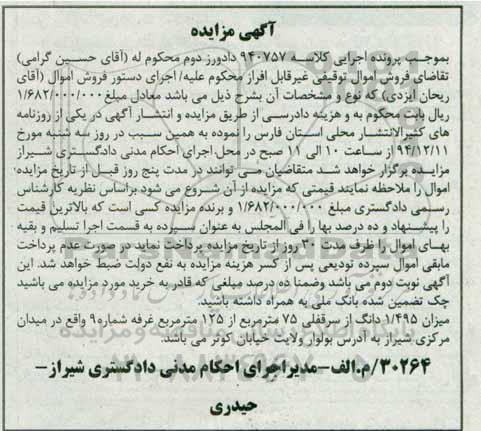 آگهی مزایده
بموجب پرونده اجرایی کلاسه ۹۴۰۷۵۷ دادورز دوم محکوم له (آقای حسین گرامی)
تقاضای فروش اموال توقیفی غیرقابل افراز محکوم علیه/ اجرای دستور فروش اموال (آقای
ریحان ایزدی) که نوع و مشخصات آن بشرح ذیل می باشد معادل مبلغ ۱/۶۸۲/۰۰۰/۰۰۰
ریال بابت محکوم به و هزینه دادرسی از طریق مزایده و انتشار آگهی در یکی از روزنامه
های کثیرالانتشار محلی استان فارس را نموده به همین سبب در روز سه شنبه مورخ
۹۴/۱۲/۱۱ از ساعت ۱۰ الی ۱۱ صبح در محل اجرای احکام مدنی دادگستری شیراز
مزایده برگزار خواهد شد متقاضیان می توانند در مدت پنج روز قبل از تاریخ مزایده
اموال را ملاحظه نمایند قیمتی که مزایده از آن شروع می شود براساس نظریه کارشناس
رسمی دادگستری مبلغ ۱/۶۸۲/۰۰۰/۰۰۰ و برنده مزایده کسی است که بالاترین قیمت
را پیشنهاد و ده درصد بها را فی المجلس به عنوان سپرده به قسمت اجرا تسلیم و بقیه
بهای اموال را ظرف مدت ۳۰ روز از تاریخ مزایده پرداخت نماید در صورت عدم پرداخت
مابقی اموال سپرده تودیعی پس از کسر هزینه مزایده به نفع دولت ضبط خواهد شد. این
آگهی نوبت دوم می باشد وضمنا ده درصد مبلغی که قادر به خرید مورد مزایده می باشید
چک تضمین شده بانک ملی به همراه داشته باشید.
میزان ۱/۴۹۵ دانگ از سرقفلی ۷۵ مترمربع از ۱۲۵ مترمربع غرفه شماره۹ واقع در میدان
مرکزی شیراز به آدرس بولوار ولایت خیابان کوثر می باشد.
۳۰۲۶۴/م.الف-مدیراجرای احکام مدنی دادگستری شیراز-
حیدری